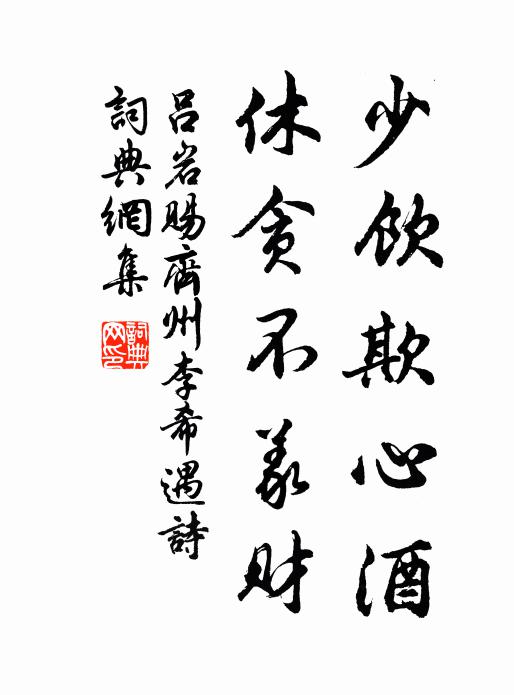 少飲欺心酒
休貪不義財
呂岩賜齊州李希遇詩
詞典網集
詞典網印